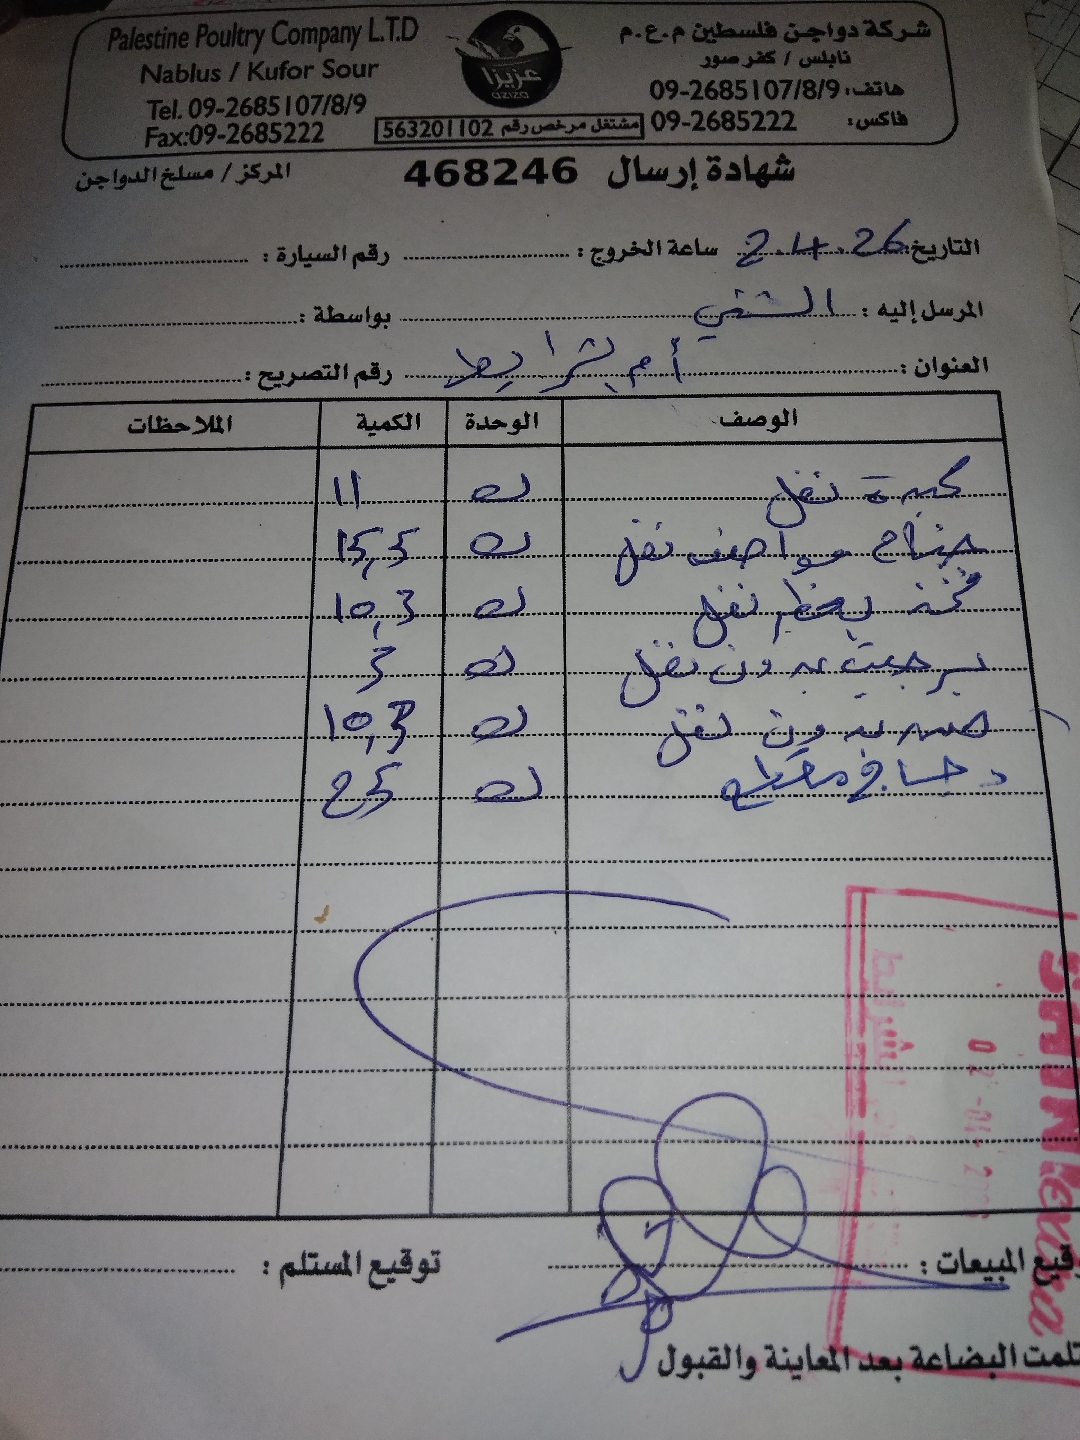 Palestine Poultry Company L.T.D
Nablus / Kufor Sour
Tel. 09-2685107/8/9
Fax:09-2685222
عزيزا
aziza
مشتغل مرخص رقم 563201102
شركة دواجن فلسطين م.ع.م
نابلس / كفر صور
هاتف: 09-2685107/8/9
فاكس: 09-2685222
شهادة إرسال 468246
المركز / مسلخ الدواجن
التاريخ: 2.4.26 ساعة الخروج: رقم السيارة:
المرسل إليه: الشني بواسطة:
العنوان: أم شرايط رقم التصريح:
الوصف الوحدة الكمية الملاحظات
كبدة نفل ك 11
جناح مواصف نفل ك 15,5
فخذ بعظم نفل ك 10,3
بدون نفل ك 3
بدون نفل ك 10,3
دجاج مقطع ك 25
SHINI
02-04-2026
توقيع المبيعات:
توقيع المستلم:
البضاعة بعد المعاينة والقبول